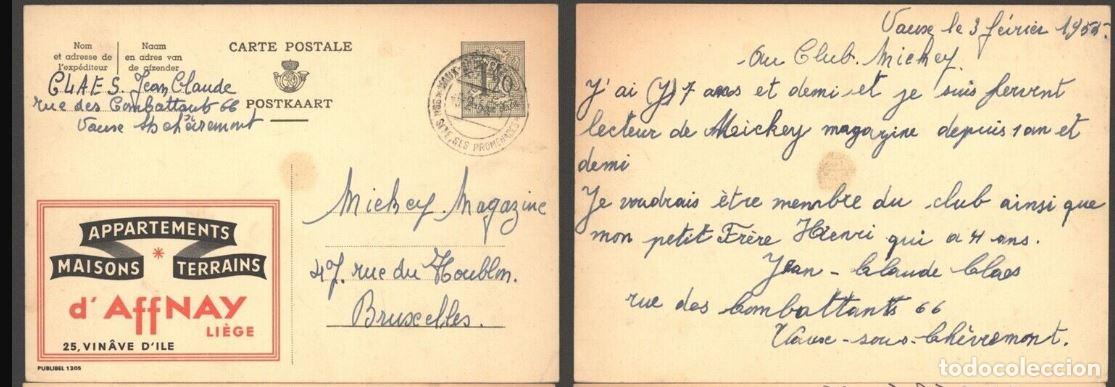 Nom
et adresse de
l'expéditeur
Naam
en adres van
de afzender
CARTE POSTALE
POSTKAART
CLAES. Jean Claude
rue des Combattants 66
Vaux s/s chèvremont
1F20
SES PROMENADES
APPARTEMENTS
MAISONS * TERRAINS
d'AffNAY
LIÈGE
25, VINÂVE D'ILE
PUBLIBEL 1205
Mickey Magazine
47. rue du Houblon.
Bruxelles.
Vaux le 3 février 1955.
Au Club Mickey.
J'ai (J) 7 ans et demi et je suis fervent
lecteur de Meickey magazine depuis 1 an et
demi
Je voudrais être membre du club ainsi que
mon petit Frère Henri qui a 4 ans.
Jean-Claude Claes
rue des Combattants 66
Vaux-sous-Chèvremont.
todocoleccion